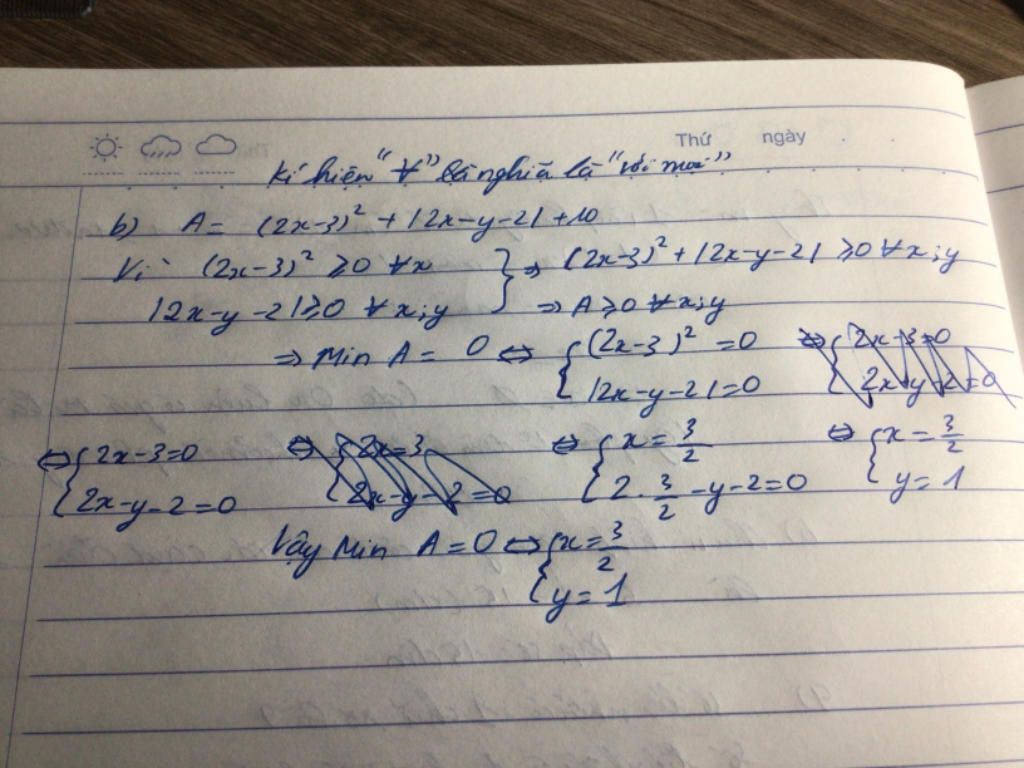 Thứ ngày
Kí hiệu "∀" là nghĩa là "với mọi"
b) A = (2x-3)² + |2x-y-2| + 10
Vì (2x-3)² ≥ 0 ∀x } ⇒ (2x-3)² + |2x-y-2| ≥ 0 ∀x;y
|2x-y-2| ≥ 0 ∀x;y ⇒ A ≥ 0 ∀x;y
⇒ Min A = 0 ⇔ { (2x-3)² = 0 ⇔ { 2x-3=0
|2x-y-2| = 0 2x-y-2=0
⇔ { 2x-3=0 ⇔ { 2x=3 ⇔ { x = 3/2 ⇔ { x = 3/2
2x-y-2=0 2x-y-2=0 2. 3/2 -y-2=0 y = 1
Vậy Min A = 0 ⇔ { x = 3/2
y = 1